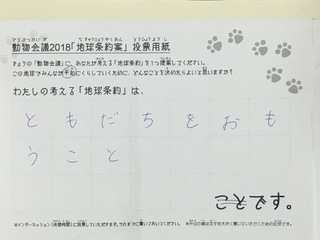 動物会議2018「地球条約案」投票用紙
きょうの「動物会議」に、あなたが考える「地球条約」を1つ提案してください。
この地球でみんなが平和にくらしていくために、どんなことを決めたらよいと思いますか?
わたしの考える「地球条約」は、
ともだちをおも
うこと
ことです。